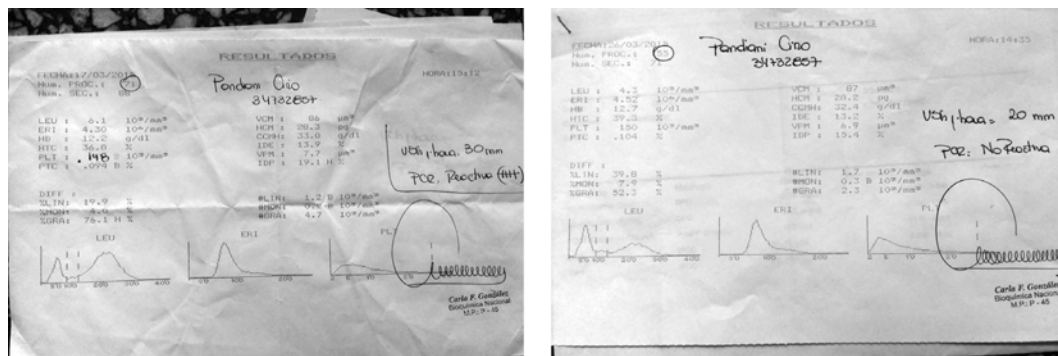 RESULTADOS
FECHA:17/03/201
Num. PROC.: 71
Num. SEC.: 68
Pandiani Ciro
34732857
HORA:13:12
LEU : 6.1 10³/mm³
ERI : 4.30 10⁶/mm³
HB : 12.2 g/dl
HTC : 36.8 %
PLT : .148 10³/mm³
PTC : .094 B %
VCM : 86 µm³
HCM : 28.3 pg
CCMH: 33.0 g/dl
IDE : 13.9 %
VPM : 7.7 µm³
IDP : 19.1 H %
VSG 1 hora: 30 mm
PCR: Reactiva (+++)
DIFF :
%LIN: 19.9 %
%MON: 4.0 %
%GRA: 76.1 H %
#LIN: 1.2 B 10³/mm³
#MON: 10³/mm³
#GRA: 4.7 10³/mm³
LEU
ERI
PLT
50 100 200 300 400
100 200
Carla F. González
Bioquímica Nacional
M.P.: P - 45
RESULTADOS
FECHA:26/03/201
Num. PROC.: 55
Num. SEC.: 71
Pandiani Ciro
34732857
HORA:14:35
LEU : 4.3 10³/mm³
ERI : 4.52 10⁶/mm³
HB : 12.7 g/dl
HTC : 39.3 %
PLT : 150 10³/mm³
PTC : .104 %
VCM : 87 µm³
HCM : 28.2 pg
CCMH: 32.4 g/dl
IDE : 13.2 %
VPM : 6.9 µm³
IDP : 15.4 %
VSG 1 hora = 20 mm
PCR: No Reactiva
DIFF :
%LIN: 39.8 %
%MON: 7.9 %
%GRA: 52.3 %
#LIN: 1.7 10³/mm³
#MON: 0.3 B 10³/mm³
#GRA: 2.3 10³/mm³
LEU
ERI
PLT
50 100 200 300 400
100 200
Carla F. González
Bioquímica Nacional
M.P.: P - 45